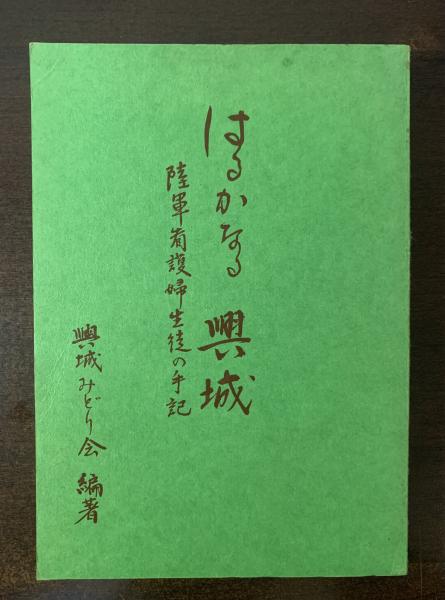 はるかなる 興城
陸軍看護婦生徒の手記
興城みどり会 編著